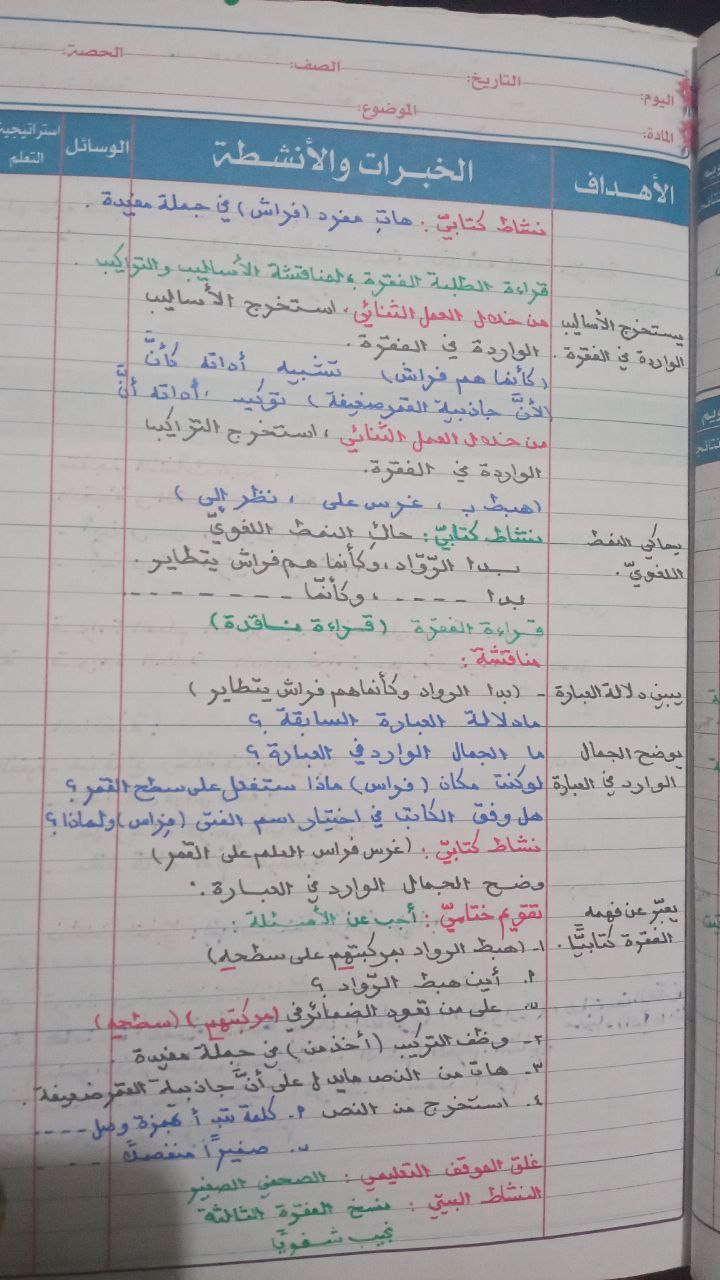 اليوم: التاريخ: الصف: الحصة:
المادة: الموضوع:
الأهداف الخبرات والأنشطة الوسائل استراتيجية التعلم
نشاط كتابيّ: هاتِ مفرد (فراش) في جملة مفيدة.
قراءة الطلبة الفقرة ومناقشة الأساليب والتراكيب.
يستخرج الأساليب من خلال العمل الثنائي، استخرج الأساليب
الواردة في الفقرة. الواردة في الفقرة.
(كأنما هم فراش) تشبيه أداته كأنَّ
(لأنَّ جاذبية القمر ضعيفة) توكيد، أداته أنَّ
من خلال العمل الثنائي، استخرج التراكيب
الواردة في الفقرة.
(هبط بـ، غرس على، نظر إلى)
يحاكي النمط نشاط كتابيّ: حاكِ النمط اللغويّ
اللغويّ. بدا الرّوّاد، وكأنما هم فراش يتطاير.
بدا ----، وكأنّما -------
قراءة الفقرة (قراءة ناقدة)
مناقشة:
يبين دلالة العبارة - (بدا الرواد وكأنما هم فراش يتطاير)
ما دلالة العبارة السابقة؟
يوضح الجمال ما الجمال الوارد في العبارة؟
الوارد في العبارة لو كنت مكان (فراس) ماذا ستفعل على سطح القمر؟
هل وفق الكاتب في اختيار اسم الفتى (فراس) ولماذا؟
نشاط كتابيّ: (غرس فراس العلم على القمر)
وضح الجمال الوارد في العبارة.
يعبّر عن فهمه تقويم ختاميّ: أجب عن الأسئلة:
الفقرة كتابيًّا. ١- (هبط الرواد بمركبتهم على سطحه)
أ. أين هبط الرّواد؟
ب. على من تعود الضمائر في (مركبتهم) (سطحه)
٢- وظف التركيب (أخذ من) في جملة مفيدة.
٣- هات من النص ما يدل على أنَّ جاذبية القمر ضعيفة.
٤. استخرج من النص أ. كلمة تبدأ بهمزة وصل ----
ب. ضميرًا منفصلًا ----
غلق الموقف التعليمي: الصحفي الصغير
النشاط البيتي: نسخ الفقرة الثالثة
نجيب شفويًّا